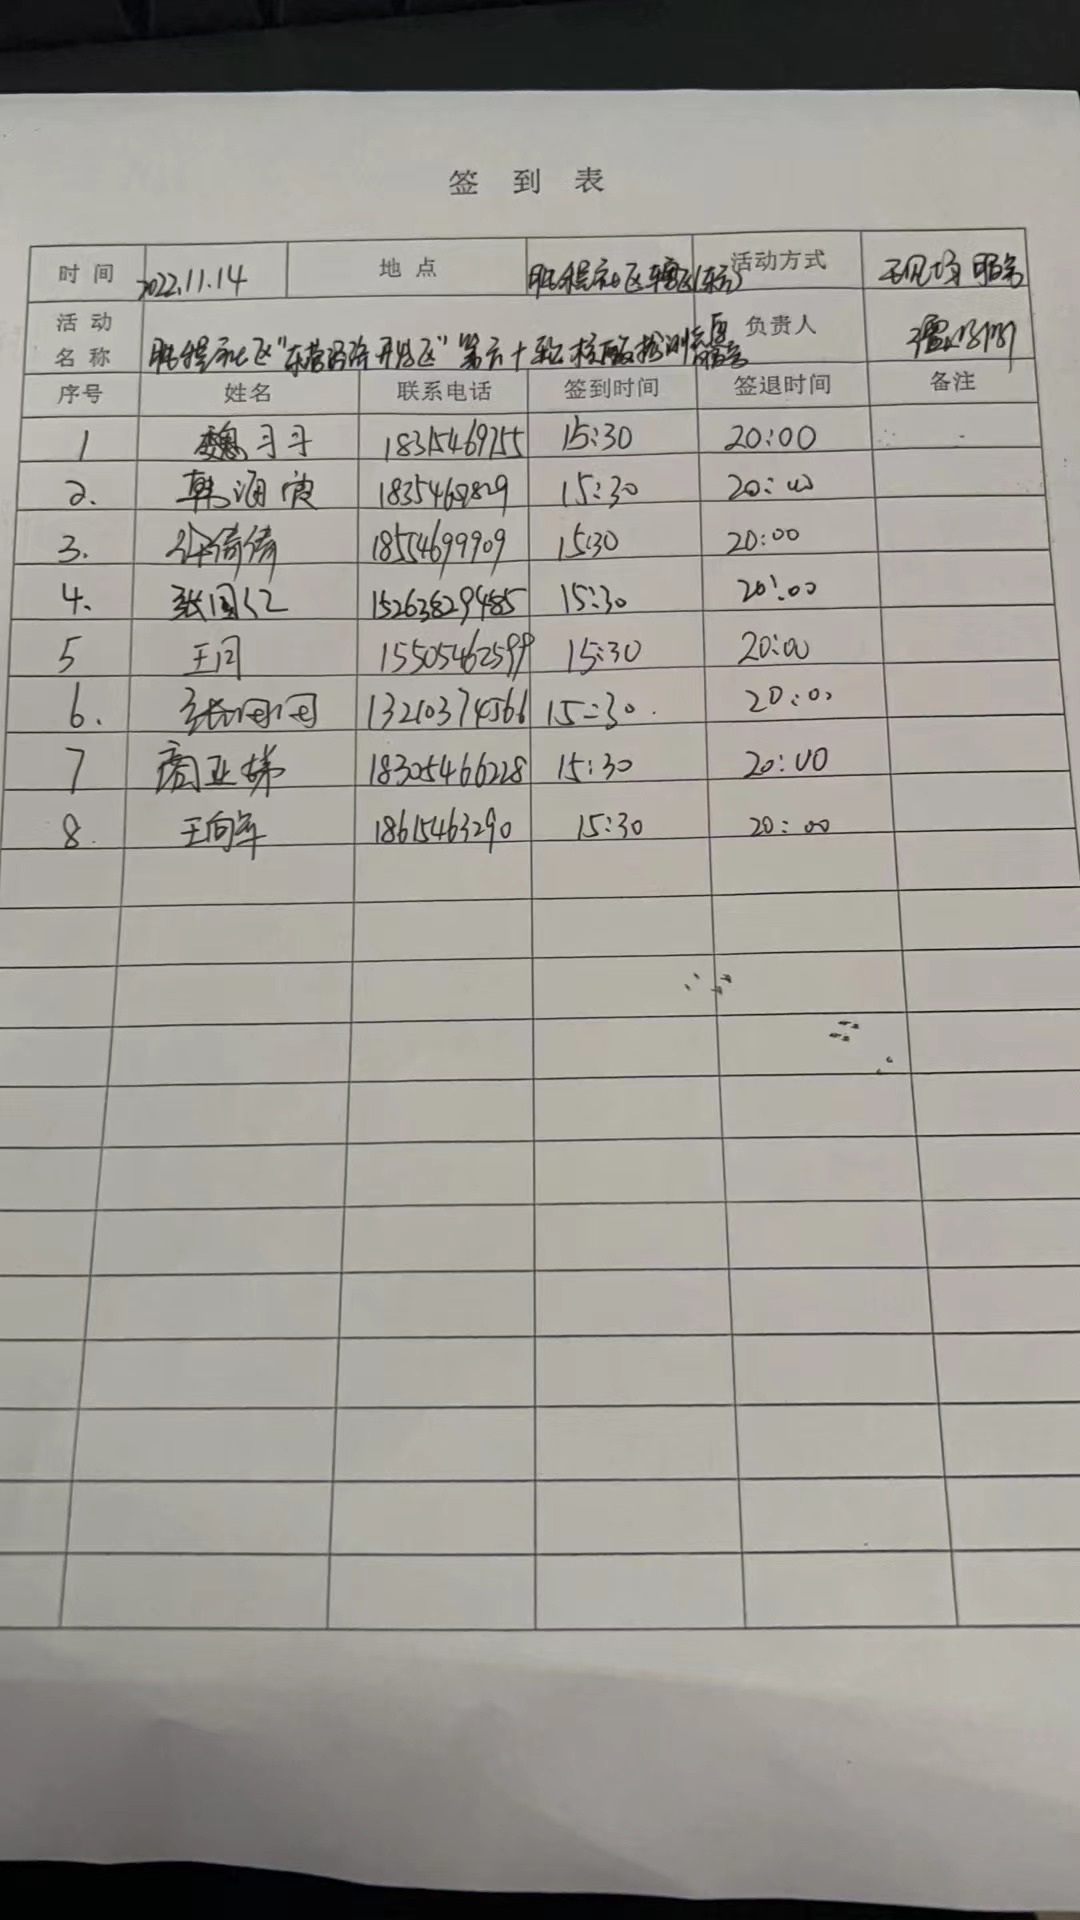 签 到 表
时 间 2022.11.14 地 点 胜程社区辖区(东方) 活动方式 现场服务
活 动
名 称 胜程社区"东营经济开发区"第六十轮核酸检测志愿服务 负责人
序号 姓名 联系电话 签到时间 签退时间 备注
1 魏弓弓 18315469755 15:30 20:00
2. 韩海霞 1835469829 15:30 20:00
3. 倩倩 18554699909 15:30 20:00
4. 张国仁 15263829485 15:30 20:00
5 王闪 15505462599 15:30 20:00
6. 张 13210374566 15:30. 20:00
7 亚娣 18305466228 15:30 20:00
8. 王向军 18615463290 15:30 20:00